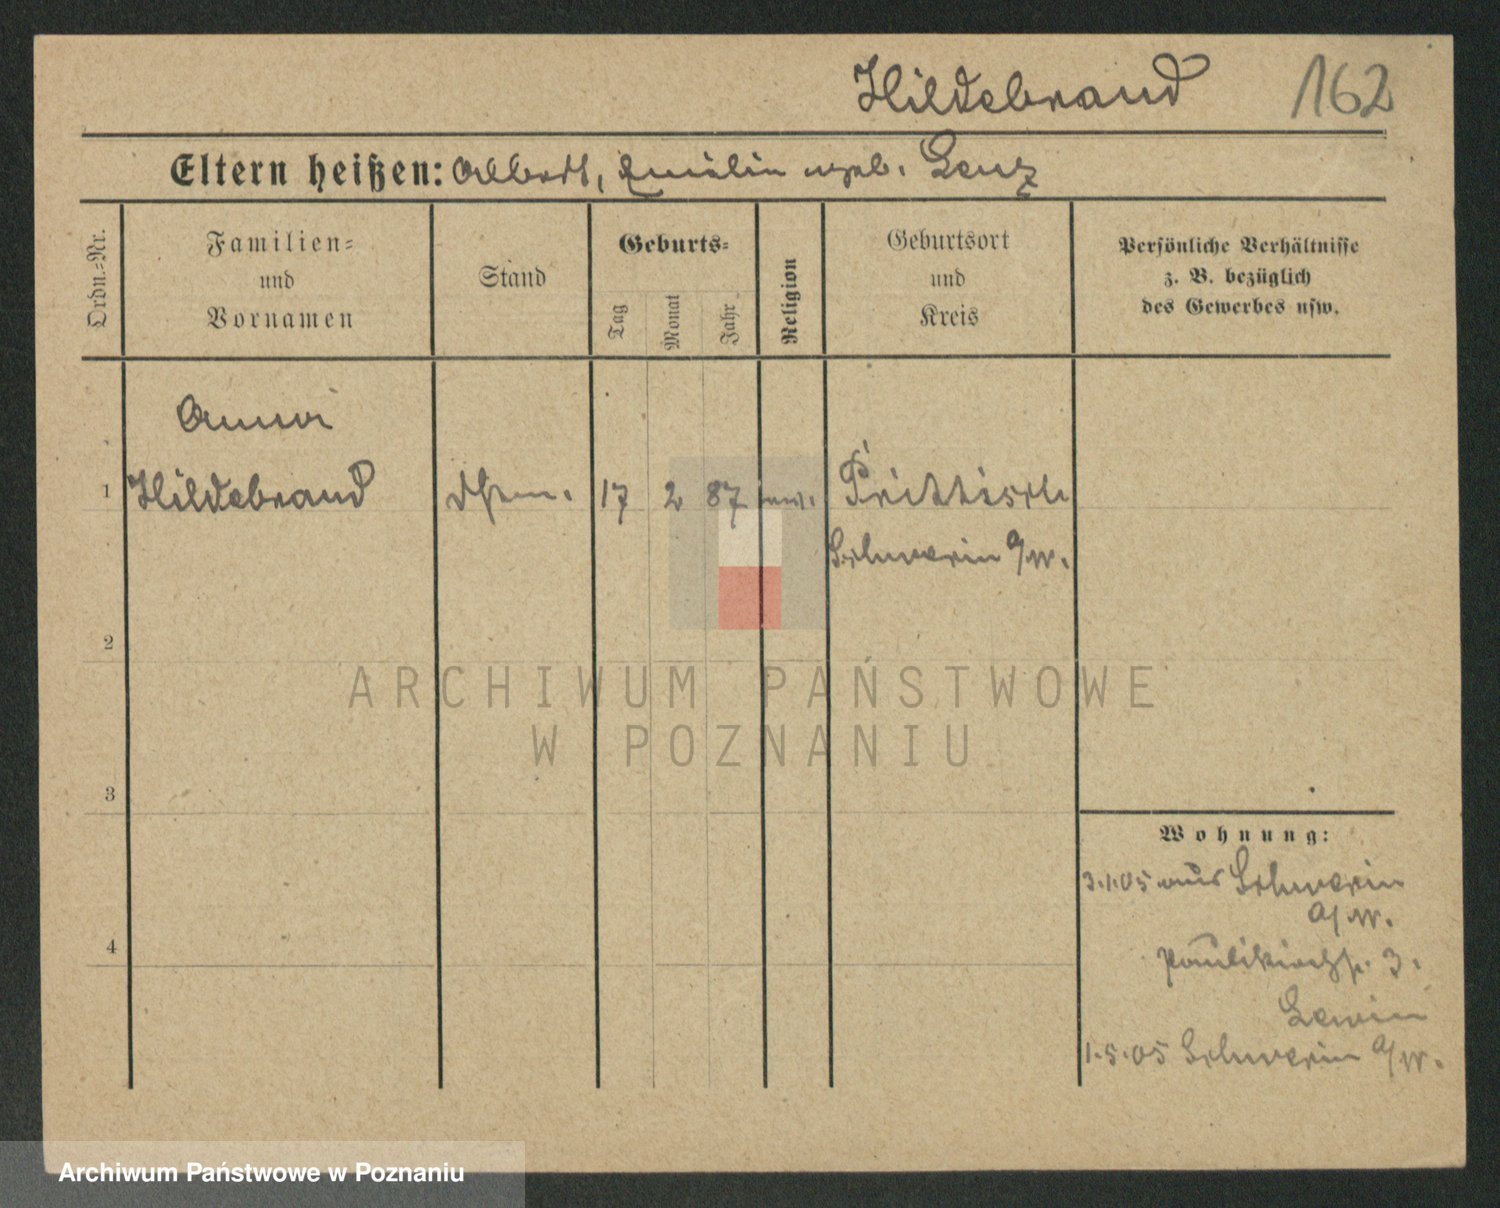 Hildebrand 162
Eltern heißen: Albert, Emilie geb. Lenz
Ordn.-Nr.
Familien-
und
Vornamen
Stand
Geburts-
Tag
Monat
Jahr
Religion
Geburtsort
und
Kreis
Persönliche Verhältnisse
z. B. bezüglich
des Gewerbes usw.
Anna
1 Hildebrand 17 2 87 Prittisch
Schwerin a/W.
2
ARCHIWUM PAŃSTWOWE
W POZNANIU
3
Wohnung:
3.1.05 aus Schwerin
a/W.
4
Paulikirchst. 3.
Lewin
1.5.05 Schwerin a/W.
Archiwum Państwowe w Poznaniu